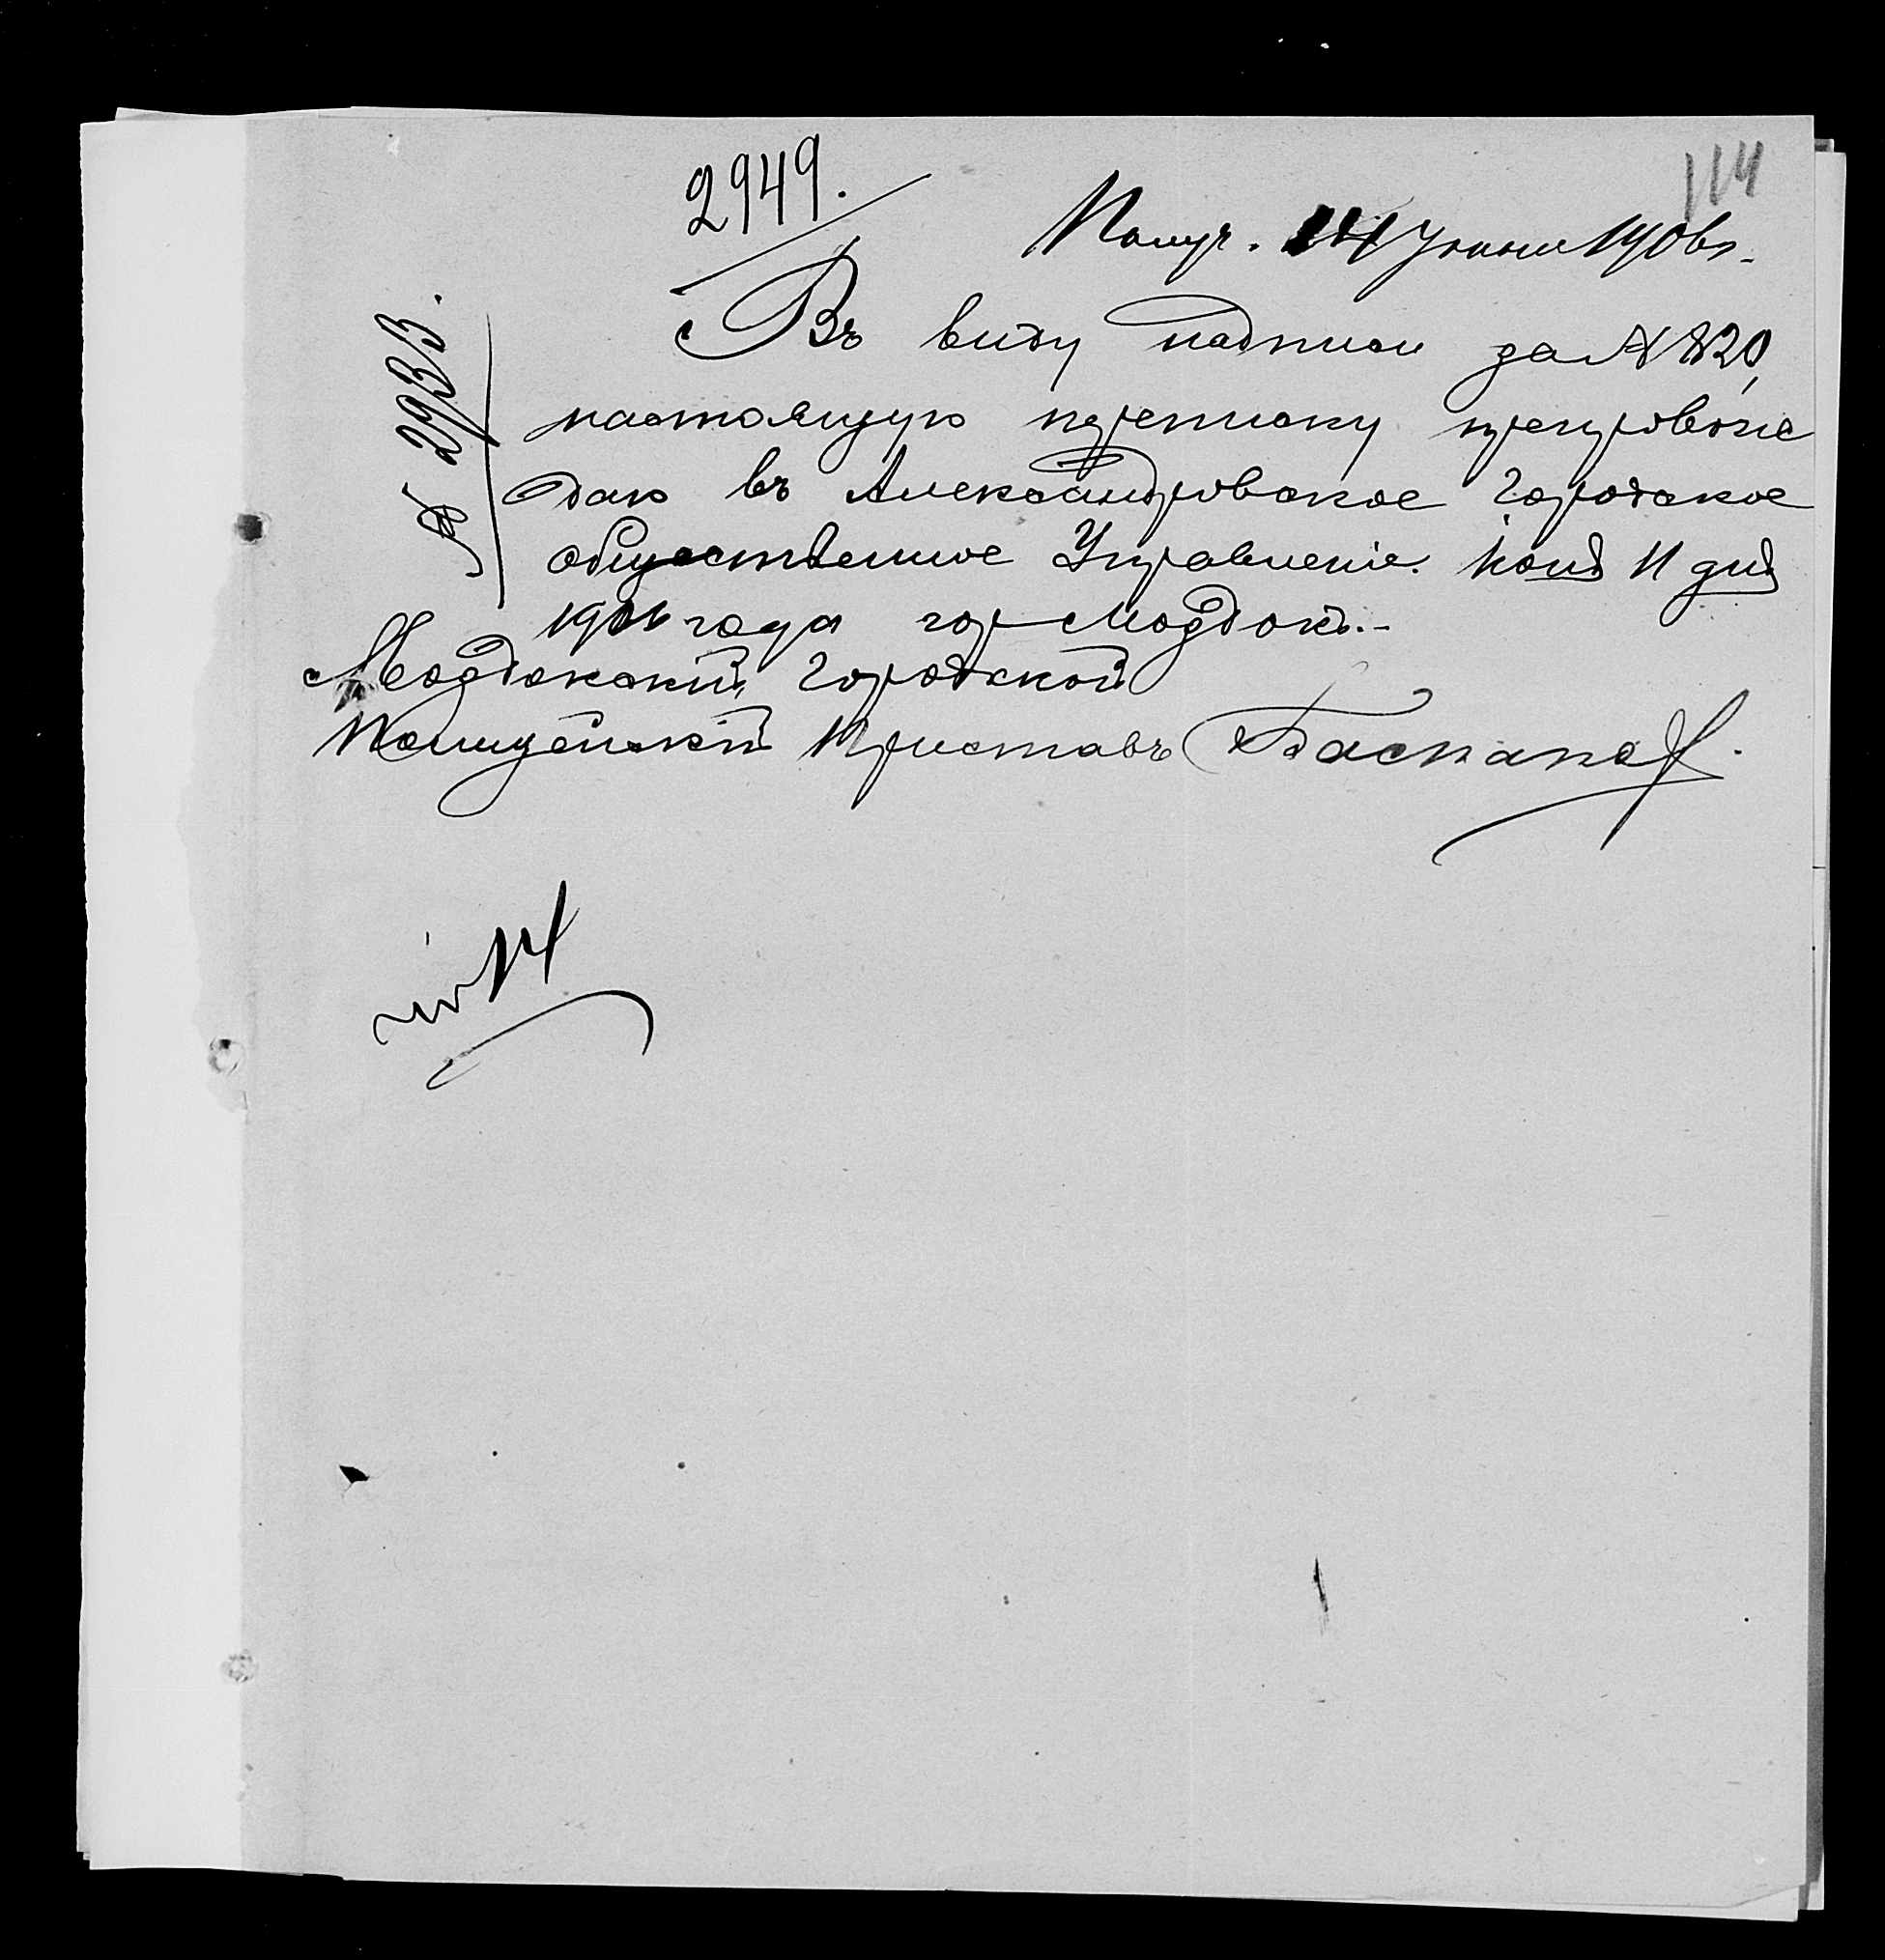 114
2949.
Получ. 14 Іюня 1906 г.
№ 2933.
Въ виду надписи за № 820,
настоящую переписку препровож
даю въ Александровское Городское
общественное Управленіе. Іюня 11 дня
1906 года гор Моздокъ.-
Моздокскій Городской
Полицейскій Приставъ